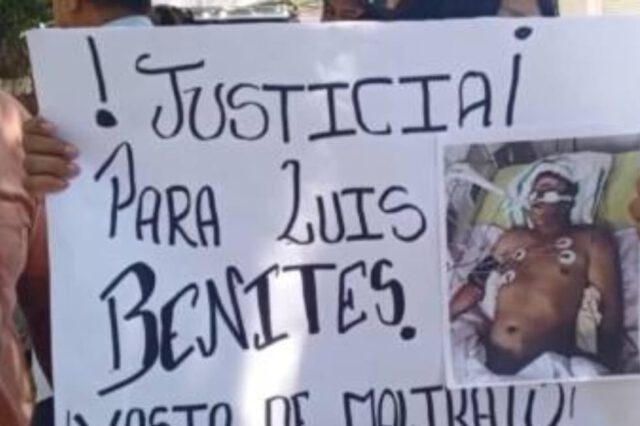 ! JUSTICIA¡
PARA LUIS
BENITES.
¡YASTA DE MALTRATO!